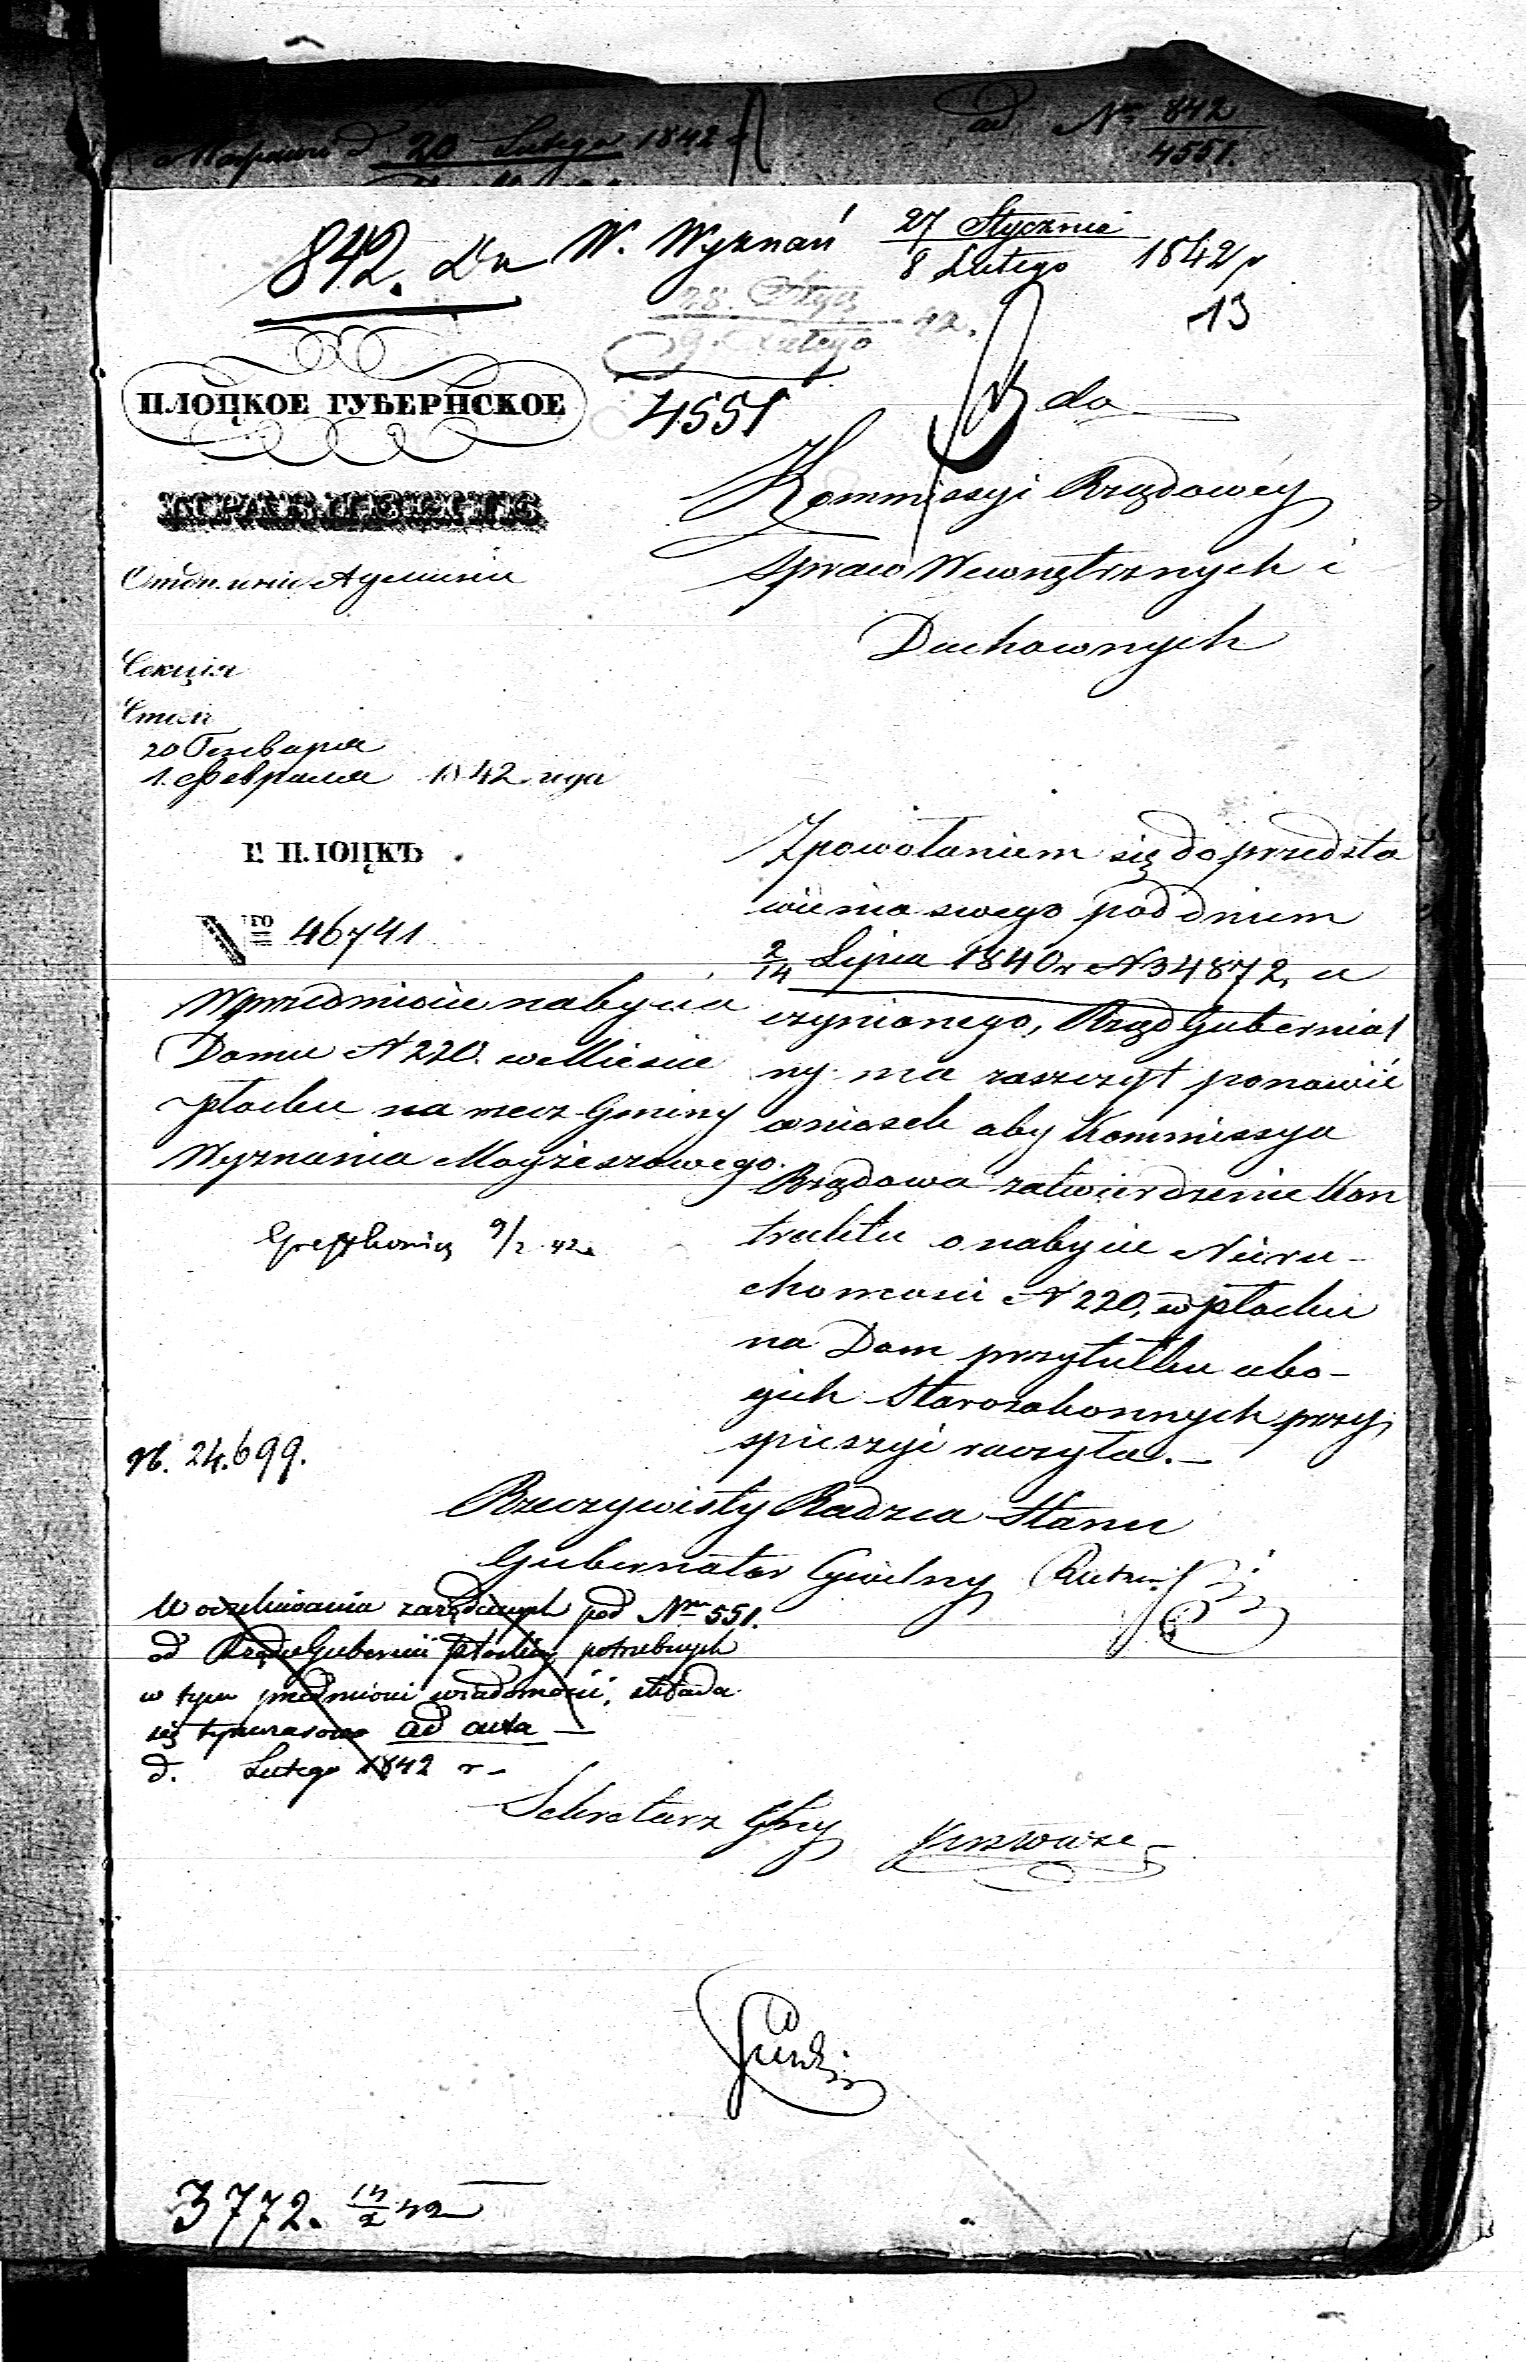 20 Lutego 1842
ad Nr 842
4551.
842. Dn W. Wyznań 27 Stycznia
8 Lutego 1842 r
13
28. Stycz
9. Lutego 42.
4551
ПЛОЦКОЕ ГУБЕРНСКОЕ
ПРАВЛЕНІЕ
Секція
Столъ
20 Генваря
1. Февраля 1842 года
Г. ПЛОЦКЪ.
Nго 46741
W przedmiocie nabycia
Domu N 220. w Miescie
Płocku na rzecz Gminy
Wyznania Mojżeszowego.
9/2 42
N. 24.699.
do
Kommissyi Rządowey
Spraw Wewnętrznych i
Duchownych
Z powołaniem się do przedsta
wienia swego pod dniem
2/14 Lipca 1840 r N 34872, u
czynionego, Rząd Gubernial
ny ma zaszczyt ponowić
wniosek aby Kommissya
Rządowa zatwierdzenie Kon
traktu o nabycie Nieru-
chomosci N 220, w Płocku
na Dom przytułku ubo-
gich Starozakonnych przy
spieszyć raczyła. -
Rzeczywisty Radzca Stanu
Gubernator Cywilny
W oczekiwaniu zarządzonych pod Nrm 551.
od Rządu Gubernii Płockiej potrzebnych
w tym przedmiocie wiadomości, składa
się tymczasowo ad acta —
d. Lutego 1842 r -
Sekretarz Głny
3772. 14/2 42